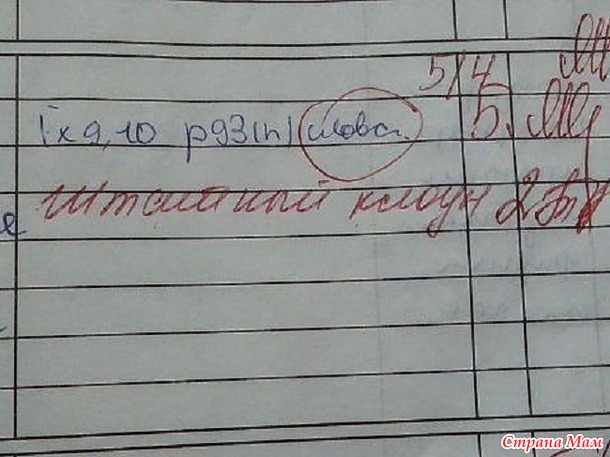 5/4
х9,10 р93(п) слова. 5.
Штатный клоун 2
Страна Мам